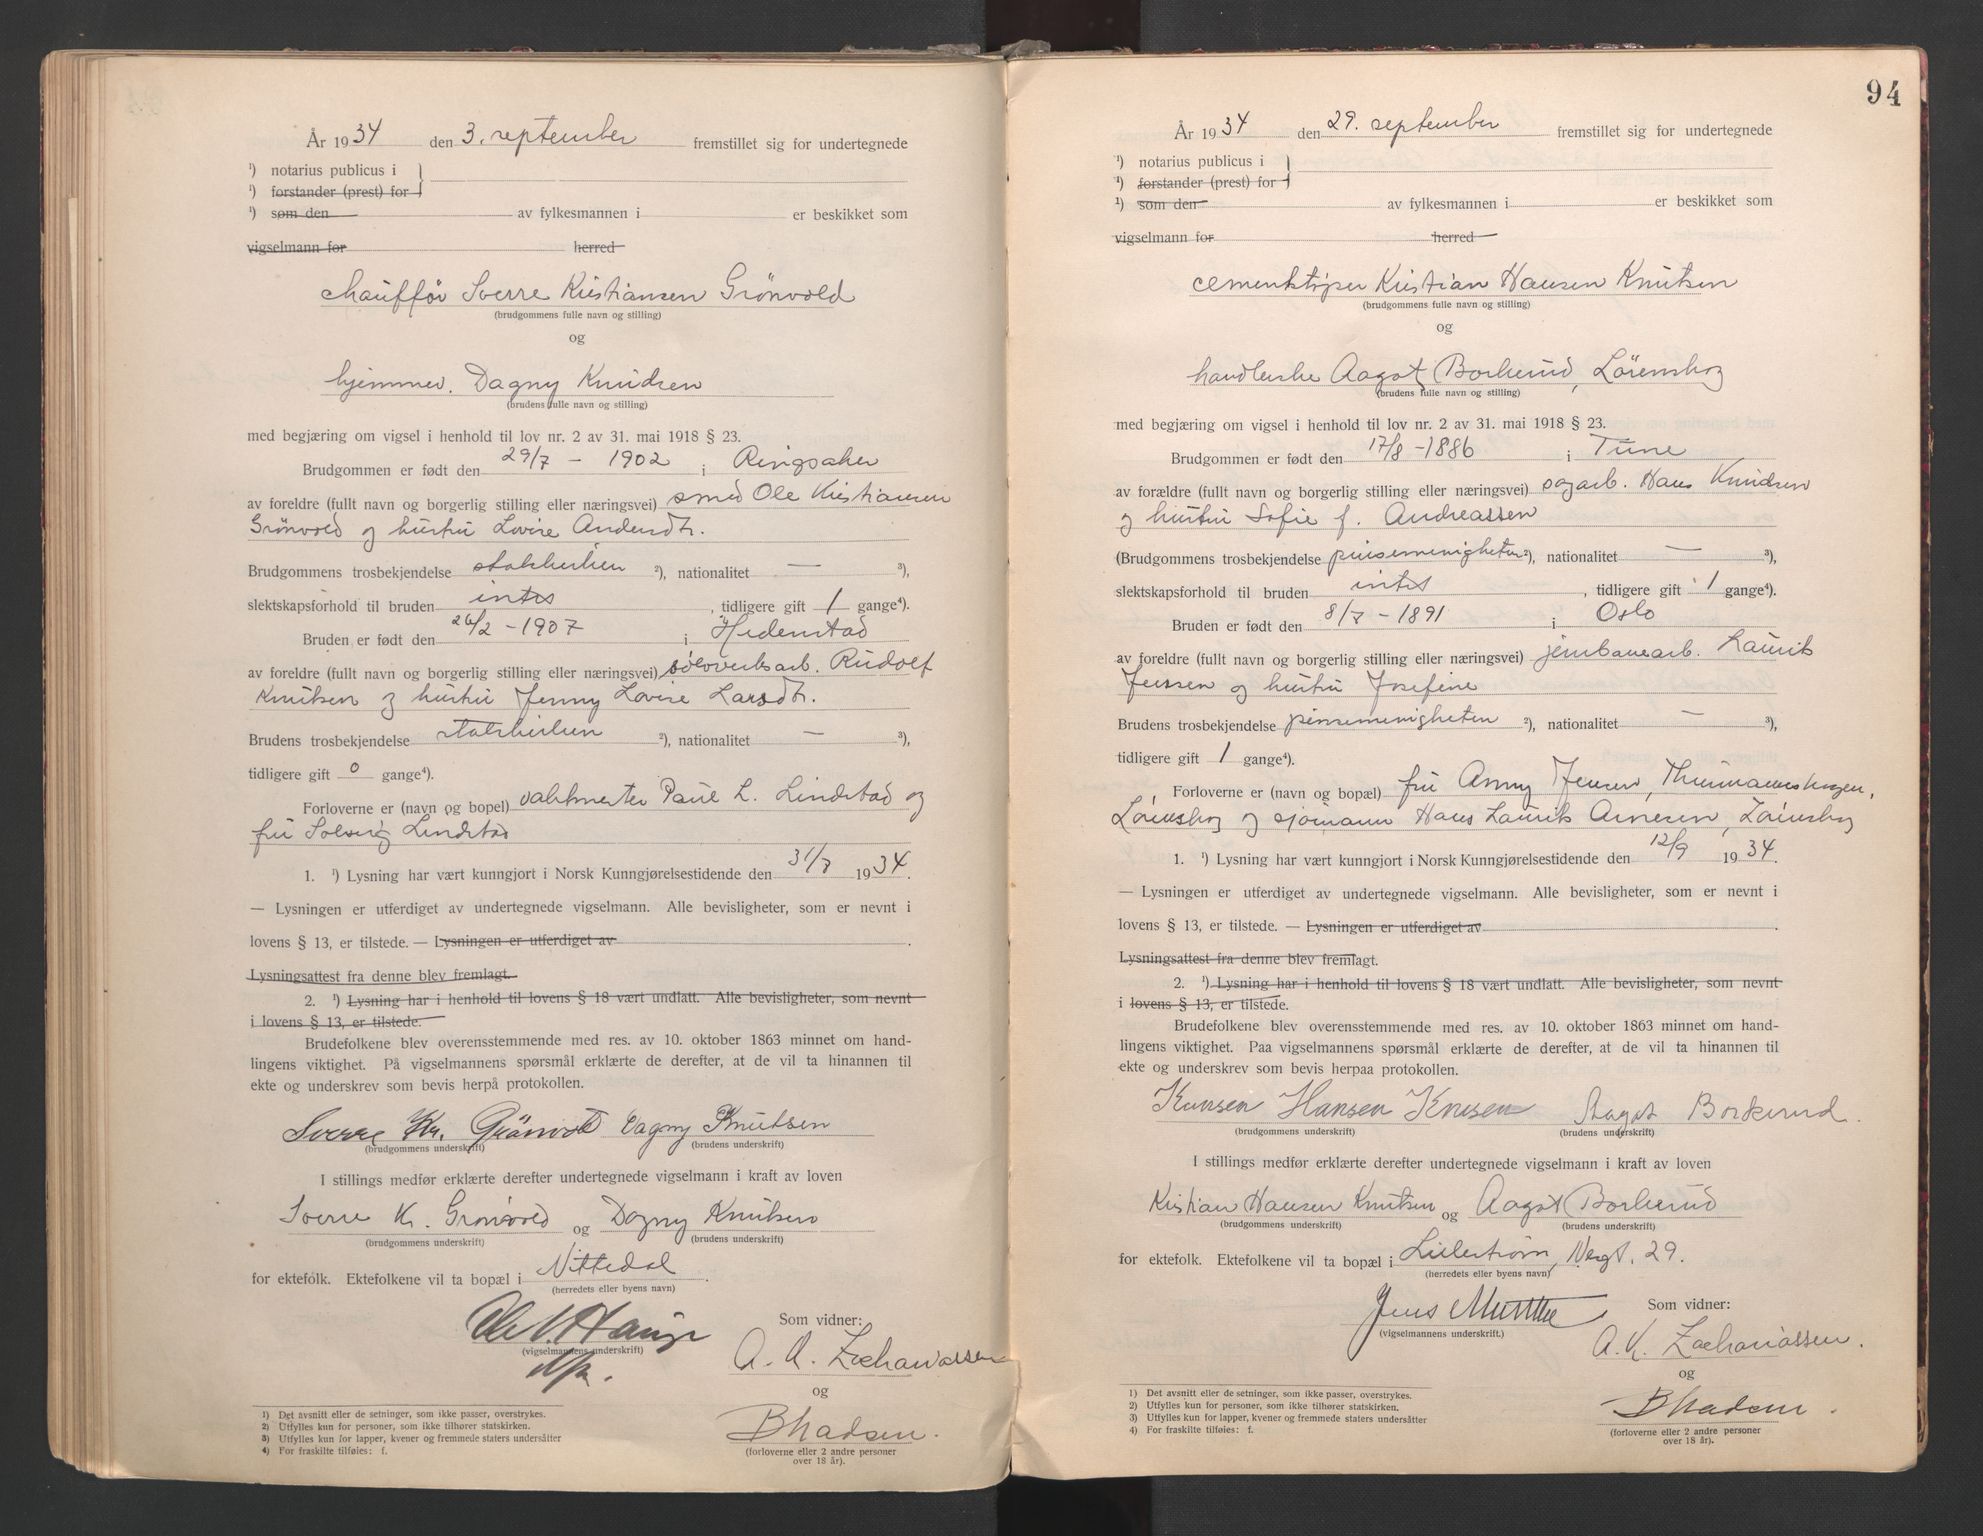 År 1934 den 3. september fremstillet sig for undertegnede
1) notarius publicus i
1) forstander (prest) for
1) som den av fylkesmannen i er beskikket som
vigselmann for herred
chaufför Sverre Kristiansen Grönvold
(brudgommens fulle navn og stilling)
og
hjemmev. Dagny Knudsen
(brudens fulle navn og stilling)
med begjæring om vigsel i henhold til lov nr. 2 av 31. mai 1918 § 23.
Brudgommen er født den 29/7 – 1902 i Ringsaker
av foreldre (fullt navn og borgerlig stilling eller næringsvei) smed Ole Kristiansen
Grönvold og hustru Lovise Andersdtr.
Brudgommens trosbekjendelse statskirken 2), nationalitet — 3),
slektskapsforhold til bruden intet, tidligere gift 1 gange4).
Bruden er født den 26/2 – 1907 i Hedenstad
av foreldre (fullt navn og borgerlig stilling eller næringsvei) sölvverksarb. Rudolf
Knutsen og hustru Jenny Lovise Larsdtr.
Brudens trosbekjendelse statskirken 2), nationalitet — 3),
tidligere gift 0 gange4).
Forloverne er (navn og bopel) vaktmester Paul L. Lindstad og
fru Solveig Lindstad
1. 1) Lysning har vært kunngjort i Norsk Kunngjørelsestidende den 31/7 1934.
— Lysningen er utferdiget av undertegnede vigselmann. Alle bevisligheter, som er nevnt i
lovens § 13, er tilstede. — Lysningen er utferdiget av .
Lysningsattest fra denne blev fremlagt.
2. 1) Lysning har i henhold til lovens § 18 vært undlatt. Alle bevisligheter, som nevnt
i lovens § 13, er tilstede.
Brudefolkene blev overensstemmende med res. av 10. oktober 1863 minnet om hand-
lingens viktighet. På vigselmannens spørsmål erklærte de derefter, at de vil ta hinannen til
ekte og underskrev som bevis herpå protokollen.
Sverre Kr. Grönvold Dagny Knutsen
(brudgommens underskrift) (brudens underskrift)
I stillings medfør erklærte derefter undertegnede vigselmann i kraft av loven
Sverre Kr. Grönvold og Dagny Knutsen
(brudgommens underskrift) (brudens underskrift)
for ektefolk. Ektefolkene vil ta bopæl i Nittedal.
(herredets eller byens navn)
Som vidner:
(vigselmannens underskrift)
A. K. Zachariassen
og
B Madsen.
(forloverne eller 2 andre personer
over 18 år).
1) Det avsnitt eller de setninger, som ikke passer, overstrykes.
2) Utfylles kun for personer, som ikke tilhører statskirken.
3) Utfylles kun for lapper, kvener og fremmede staters undersåtter
4) For fraskilte tilføies: f.
94
År 1934 den 29. september fremstillet sig for undertegnede
1) notarius publicus i
1) forstander (prest) for
1) som den av fylkesmannen i er beskikket som
vigselmann for herred
cementstöper Kristian Hansen Knutsen
(brudgommens fulle navn og stilling)
og
handlerske Aagot Borkerud, Lörenskog
(brudens fulle navn og stilling)
med begjæring om vigsel i henhold til lov nr. 2 av 31. mai 1918 § 23.
Brudgommen er født den 17/8 – 1886 i Tune
av forældre (fullt navn og borgerlig stilling eller næringsvei) sagarb. Hans Knudsen
og hustru Sofie f. Andreassen
(Brudgommens trosbekjendelse pinsemenigheten 2), nationalitet — 3),
slektskapsforhold til bruden intet, tidligere gift 1 gange4).
Bruden er født den 8/7 – 1891 i Oslo
av foreldre (fullt navn og borgerlig stilling eller næringsvei) jernbanearb. Laurik
Jenssen og hustru Josefine
Brudens trosbekjendelse pinsemenigheten 2), nationalitet — 3),
tidligere gift 1 gange4).
Forloverne er (navn og bopæl) fru Anny Jensen, Thurmannskogen,
Lörenskog og sjömann Hans Laurik Arnesen, Lörenskog
1. 1) Lysning har vært kunngjort i Norsk Kunngjørelsestidende den 12/9 1934.
— Lysningen er utferdiget av undertegnede vigselmann. Alle bevisligheter, som er nevnt i
lovens § 13, er tilstede. — Lysningen er utferdiget av .
Lysningsattest fra denne blev fremlagt.
2. 1) Lysning har i henhold til lovens § 18 vært undlatt. Alle bevisligheter, som nevnt
i lovens § 13, er tilstede.
Brudefolkene blev overensstemmende med res. av 10. oktober 1863 minnet om hand-
lingens viktighet. Paa vigselmannens spørsmål erklærte de derefter, at de vil ta hinannen til
ekte og underskrev som bevis herpaa protokollen.
Hansen Aagot Borkerud.
(brudgommens underskrift) (brudens underskrift)
I stillings medfør erklærte derefter undertegnede vigselmann i kraft av loven
Kristian Hansen Knutsen og Aagot Borkerud
(brudgommens underskrift) (brudens underskrift)
for ektefolk. Ektefolkene vil ta bopæl i Lillestrøm, 29.
(herredets eller byens navn)
Jens
Som vidner:
(vigselmannens underskrift.)
A. K. Zachariassen.
og
B Madsen.
(forloverne eller 2 andre personer
over 18 år).
1) Det avsnitt eller de setninger, som ikke passer, overstrykes.
2) Utfylles kun for personer, som ikke tilhører statskirken.
3) Utfylles kun for lapper, kvener og fremmede staters undersåtter
4) For fraskilte tilføies: f.